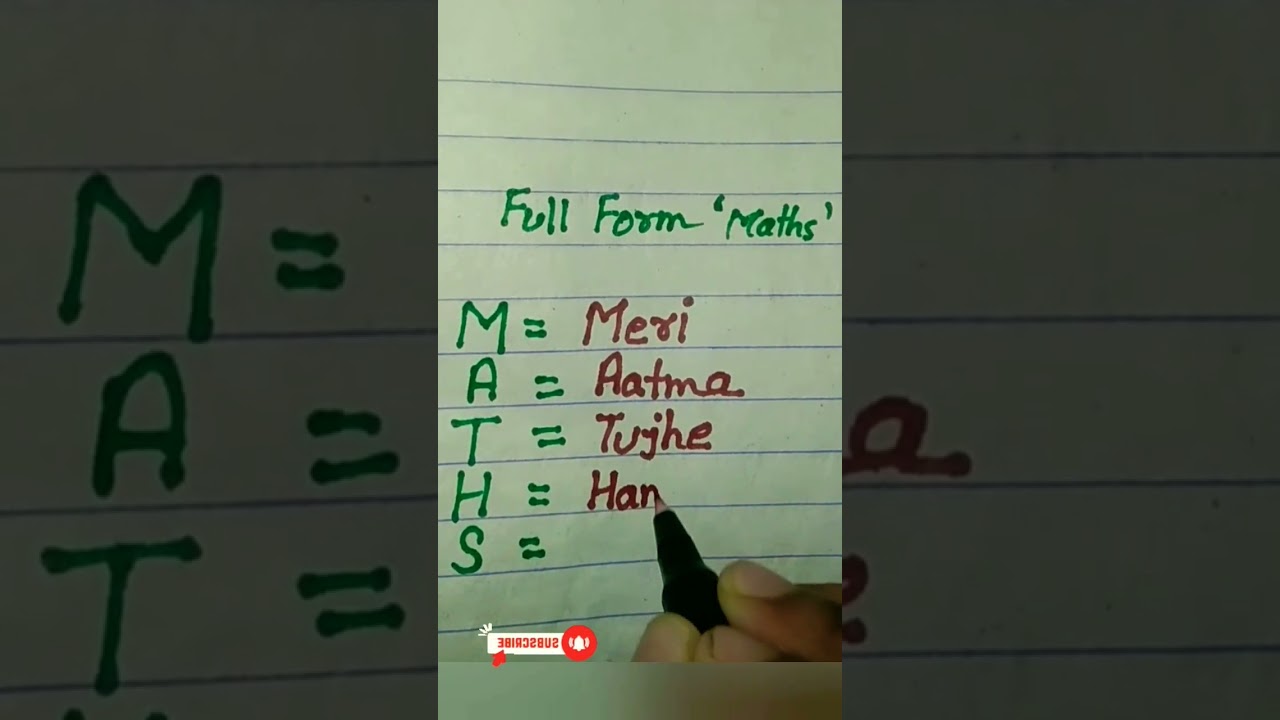 Full Form 'Maths'
M = Meri
A = Aatma
T = Tujhe
H = Han
S =
SUBSCRIBE
M =
A =
T =
a
e